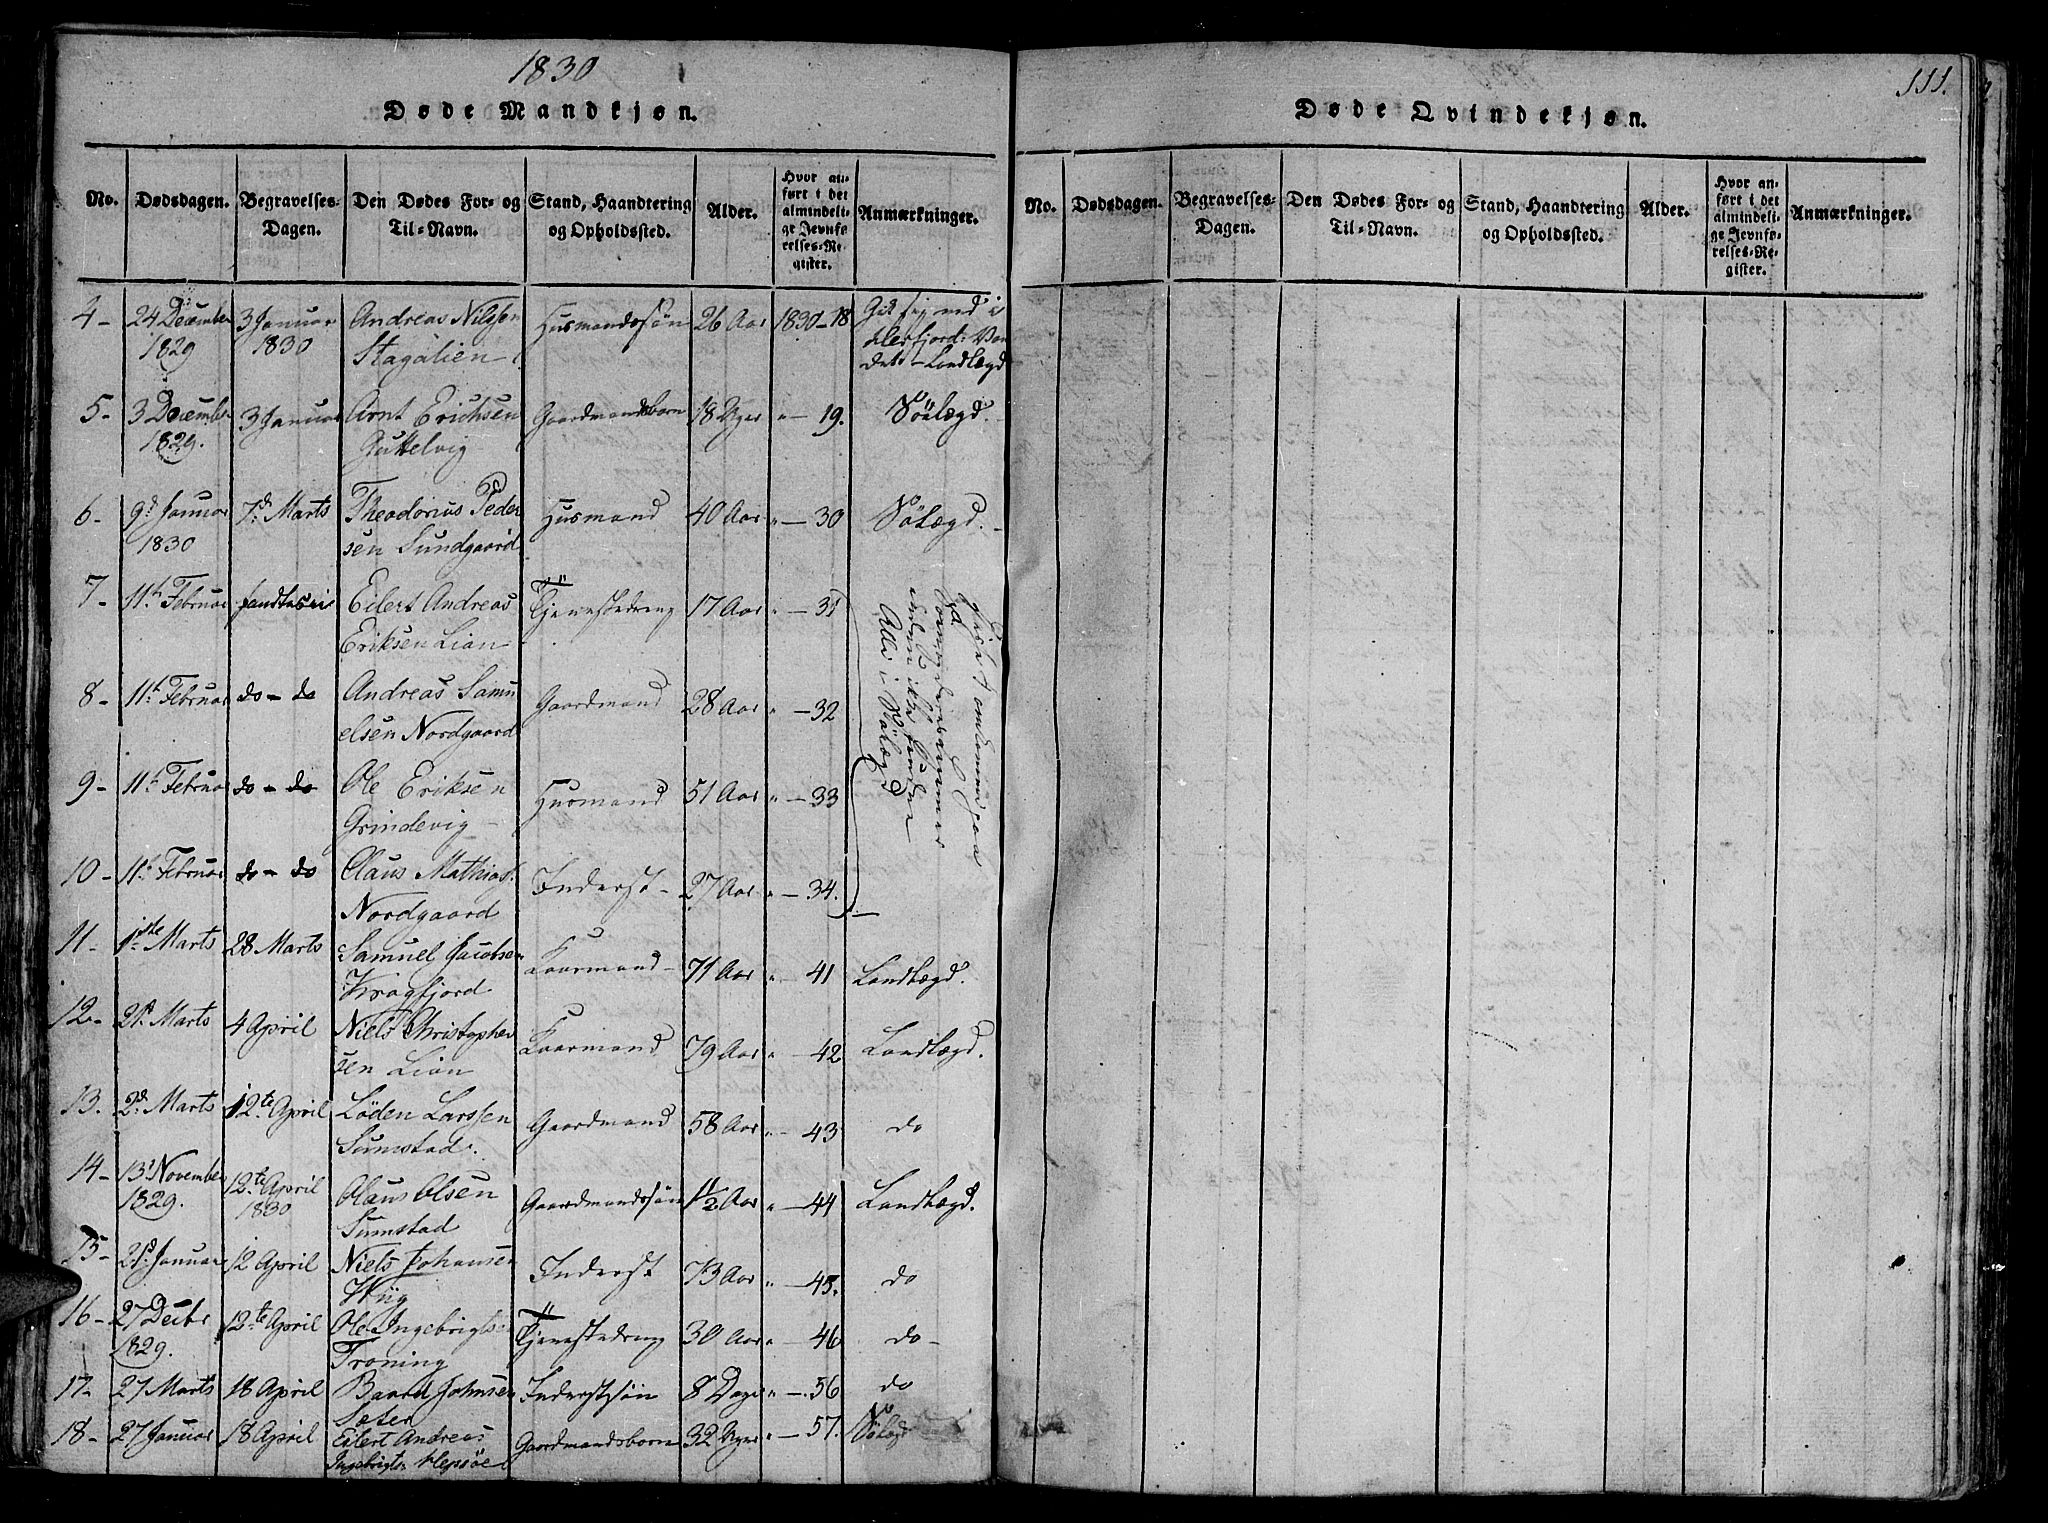 1830
Døde Mandkjøn.
No. Dødsdagen. Begravelses-Dagen. Den Dødes For- og Til-Navn. Stand, Haandtering og Opholdssted. Alder. Hvor anført i det almindelige Jevnførelses-Register. Anmærkninger.
4 - 24 December 1829 3 Januar 1830 Andreas Nilssen Stagalien Husmandssøn 26 Aar 1830 - 18 Landlægd
5 - 3 December 1829. 3 Januar Arnt Erichsen Guttelvig Gaardmandsbarn 18 Uger " - 19. Søelægd.
6 - 9d Januar 1830 7d Marts Theodorius Pedersen Sundgaard Husmand 40 Aar " - 30 Sølægd.
7 - 11te Februar fandtes ei Eilert Andreas Eriksen Lian Tjenestedreng 17 Aar " - 31
8 - 11te Februar do - do Andreas Samuelsen Nordgaard Gaardmand 28 Aar " - 32
9 - 11te Februar do - do Ole Eriksen Grindevig - Husmand 51 Aar " - 33
10 - 11te Februar do - do Claus Mathias. Nordgaard Inderst - 27 Aar " - 34.
Alle i Sølægd
11 - 1ste Marts 28 Marts Samuel Jacobsen Kragfjord Kaarmand - 71 Aar " - 41 Landlægd.
12 - 2d Marts 4 April Niels Christophersen Lian Kaarmand 79 Aar " - 42 Landlægd.
13. 2d Marts 12te April Løden Larssen Sumstad. Gaardmand 58 Aar " - 43 do
14 - 13d November 1829. 12te April 1830 Olaus Olsen Sumstad Gaardmandssøn 1½ Aar " - 44 Landlægd.
15 - 21d Januar 12 April Niels Johansen Wiig Inderst 73 Aar " - 45. do
16 - 27 Decbr 1829. 12te April Ole Ingebrigtsen Troning Tjenestedreng 30 Aar " - 46 do -
17 - 27 Marts 18 April Baard Johnsen Sæter Inderstsøn 8 Dage " - 56 do
18 - 27 Januar 18 April Eilert Andreas Ingebrigts. Hepsøe Gaardmandsbarn 32 Uger " - 57. Søelægd
111.
Døde Qvindekjøn.
No. Dødsdagen. Begravelses-Dagen. Den Dødes For- og Til-Navn. Stand, Haandtering og Opholdssted. Alder. Hvor anført i det almindelige Jevnførelses-Register. Anmærkninger.